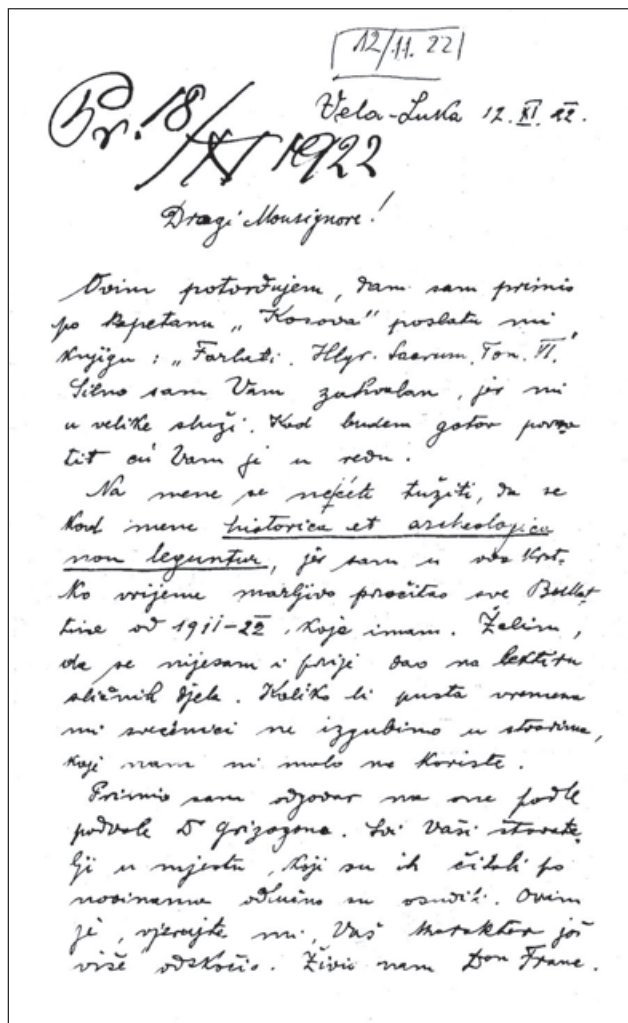 12/11. 22
Vela-Luka 12. XI. 22.
Pr. 18/XI 1922
Dragi Monsignore!
Ovim potvrđujem, dam sam primio
po kapetanu „Kosova" poslatu mi
knjigu: „Farlati. Illyr. Sacrum. Tom. VI."
Silno sam Vam zahvalan, jer mi
u velike služi. Kad budem gotov povra
tit ću Vam je u redu.
Na mene se nećete tužiti, da se
kod mene historica et archeologica
non leguntur, jer sam u ovo krat-
ko vrijeme marljivo pročitao sve Bullet
tine od 1911-22, koje imam. Žalim,
da se nijesam i prije dao na lektiru
sličnih djela. Koliko li pusta vremena
mi svećenici ne izgubimo u stvarima,
koje nam ni malo ne koriste.
Primio sam odgovor na one podle
podvale Dr Grizogona. Svi Vaši štovate-
lji u mjestu, koji su ih čitali po
novinama odlučno su osudili. Ovim
je, vjerujte mi, Vaš karakter još
više odskočio. Živio nam Don Frane.